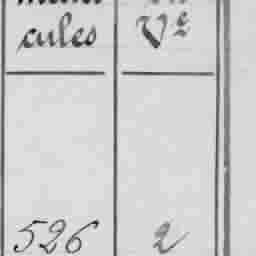 cules Vᵉ
526 2